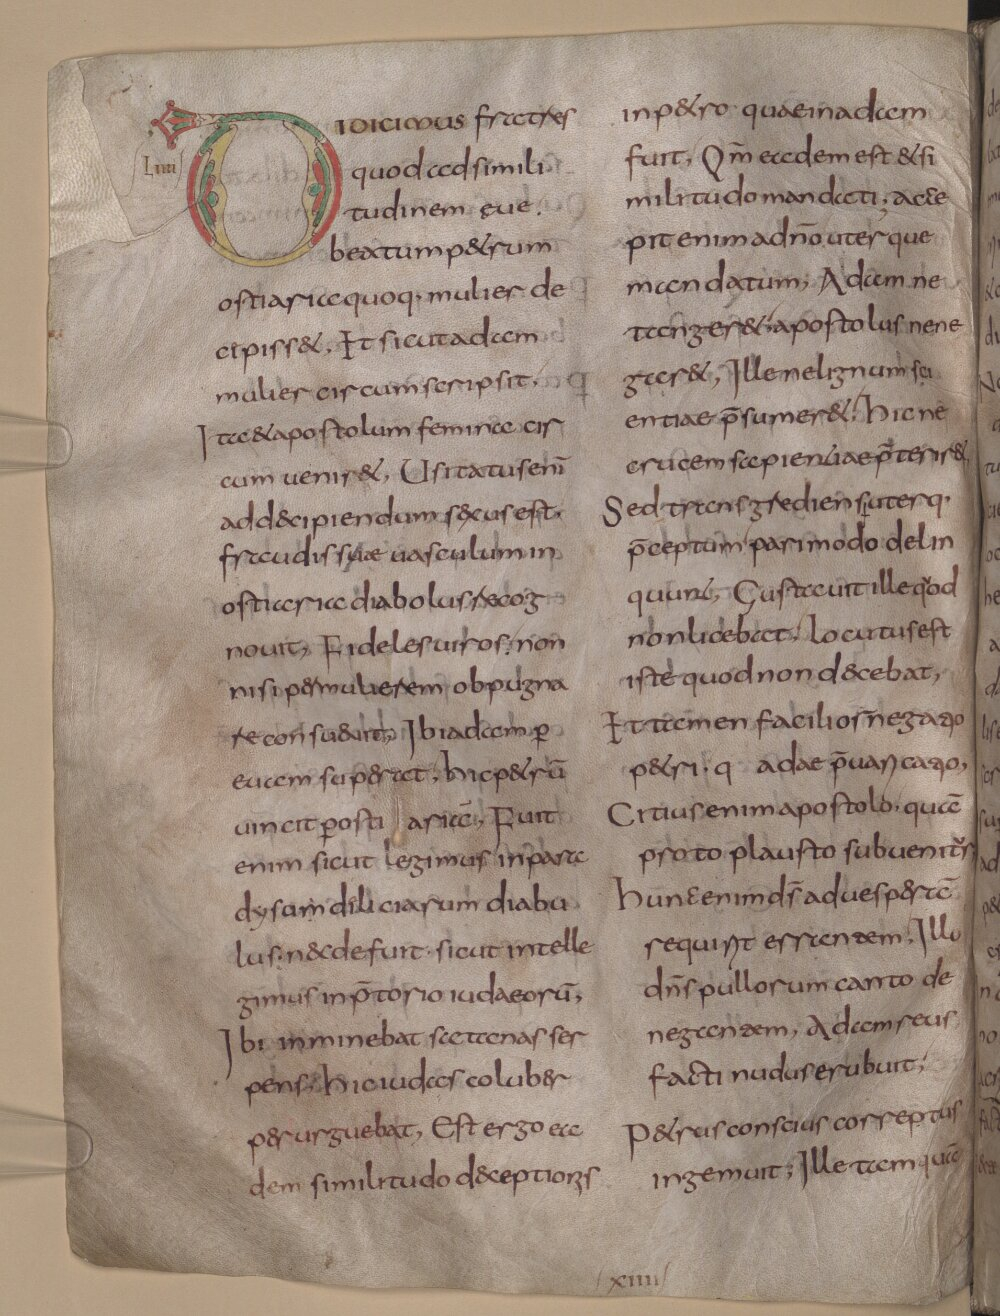 Liiii
DIDICIMUS fratres
quod ad simili
tudinem eue.
beatum p&rum
ostiaria quoq; mulier de
cipiss&, Et sicut adam
mulier circumscripsit,
Ita & apostolum femina cir
cumuenir&, Usitatus eni̅
ad decipiendum sexus est,
fraudis suae uasculum in
ostiaria diabolus recog
nouit, Fideles uiros non
nisi per mulierem obpugna
re consueuit, Ibi adam p̲
euam superat, hic p&ru̅
uincit p̲ osti ariam̅, Fuit
enim sicut legimus in para
dyso in diliciarum diabu
lus; nec defuit sicut intelle
gimus in p̅torio iudaeoru̅,
Ibi inminebat sathanas ser
pens, hic iudas coluber
perurguebat, Est ergo ea
dem similitudo deceptionis
in p&ro quae in adam
fuit, Qm̅ eadem est & si
militudo mandati, acce
pit enim ad n̅o uterque
mandatum, Adam ne
tanger&, apostolus ne ne
gar&, Ille ne lignum sci
entiae p̅sumer&, hic ne
crucem sapientiae p̅terir&
Sed transgrediens uterq;
p̅ceptum pari modo delin
quunt, Gustauit ille quod
non licebat, locutus est
iste quod non decebat,
Et tamen facilior negatio
p&ri. q adae p̅uaricatio,
Citius enim apostolo, qua̅
protoplausto subuenitur
Hunc enim ds̅ ad uespera̅
requirit errantem, Illo
dn̅s pullorum canto de
negantem, Adam reus
facti nudus erubuit,
P&rus conscius correptus
ingemuit; Ille tam qua̅
xiiii